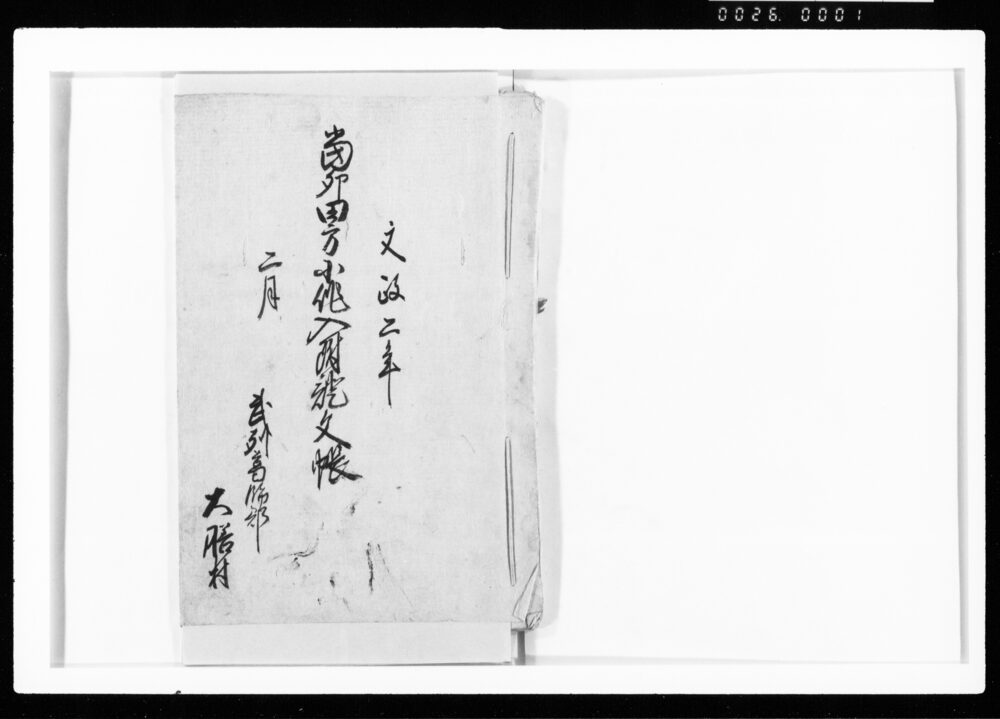 0026.0001
文政二年
當卯田方小作入附證文帳
二月
武州葛飾郡
大膳村